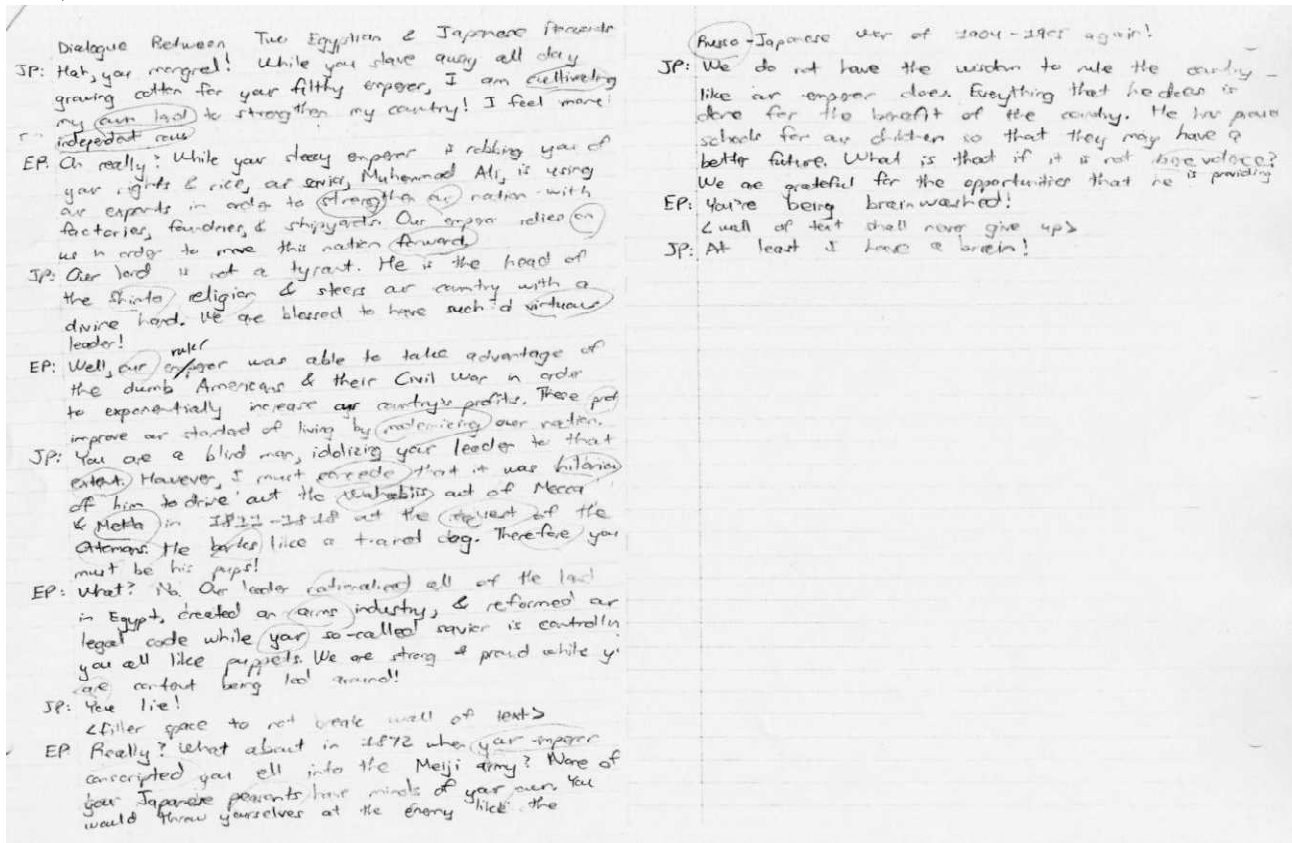 Dialogue Between Two Egyptian & Japanese Peasants
JP: Hah, you mongrel! While you slave away all day
growing cotton for your filthy emperor, I am cultivating
my own land to strengthen my country! I feel more
independent now
EP: Oh really? While your sleezy emperor is robbing you of
your rights & rice, our savior, Muhammad Ali, is using
our exports in order to strengthen our nation with
factories, founderies, & shipyards. Our emperor relies on
us in order to move this nation forward.
JP: Our lord is not a tyrant. He is the head of
the Shinto religion & steers our country with a
divine hand. We are blessed to have such a virtuous
leader!
ruler
EP: Well, our emperor was able to take advantage of
the dumb Americans & their Civil War in order
to exponentially increase our country's profits. These prof
improve our standard of living by modernizing our nation.
JP: You are a blind man, idolizing your leader to that
extent. However, I must concede that it was hilarious
off him to drive out the Wahabiis out of Mecca
& in 1811-1818 at the request of the
Ottomans. He barks like a trained dog. Therefore you
must be his pups!
EP: What? No. Our leader nationalized all of the land
in Egypt, created an arms industry, & reformed our
legal code while your so-called savior is controllin
you all like puppets. We are strong & proud while y
are content being lead around!
JP: You lie!
<filler space to not break wall of text>
EP: Really? What about in 1872 when your emperor
conscripted you all into the Meiji army? None of
your Japanese peasants have minds of your own. You
would throw yourselves at the enemy like the
Russo-Japanese war of 1904-1905 again!
JP: We do not have the wisdom to rule the country
like our emperor does. Everything that he does is
done for the benefit of the country. He has
schools for our children so that they may have a
better future. What is that if it is not benevolence?
We are grateful for the opportunities that he is providing
EP: You're being brainwashed!
<wall of text shall never give up>
JP: At least I have a brain!